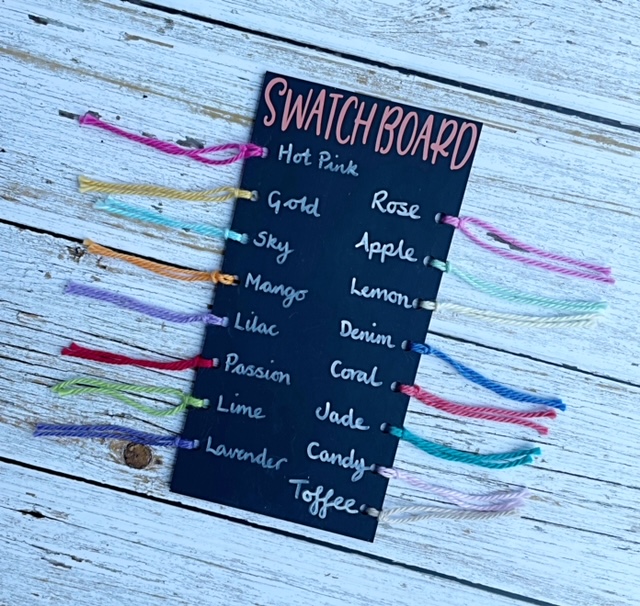 SWATCH BOARD
Hot Pink
Gold
Sky
Mango
Lilac
Passion
Lime
Lavender
Rose
Apple
Lemon
Denim
Coral
Jade
Candy
Toffee